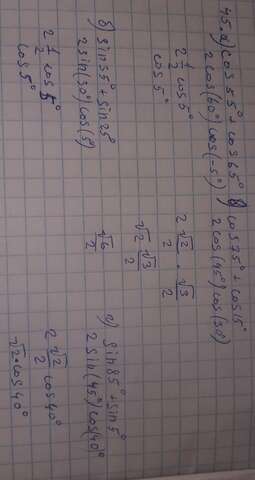 45. а) cos 55° + cos 65°
2 cos(60°) cos(-5°)
2 1/2 cos 5°
cos 5°
б) sin 35° + sin 25°
2 sin(30°) cos(5°)
2 1/2 cos 5°
cos 5°
в) cos 75° + cos 15°
2 cos(45°) cos(30°)
2 √2/2 · √3/2
√2 √3/2
√6/2
г) sin 85° + sin 5°
2 sin(45°) cos(40°)
2 √2/2 cos 40°
√2 · cos 40°